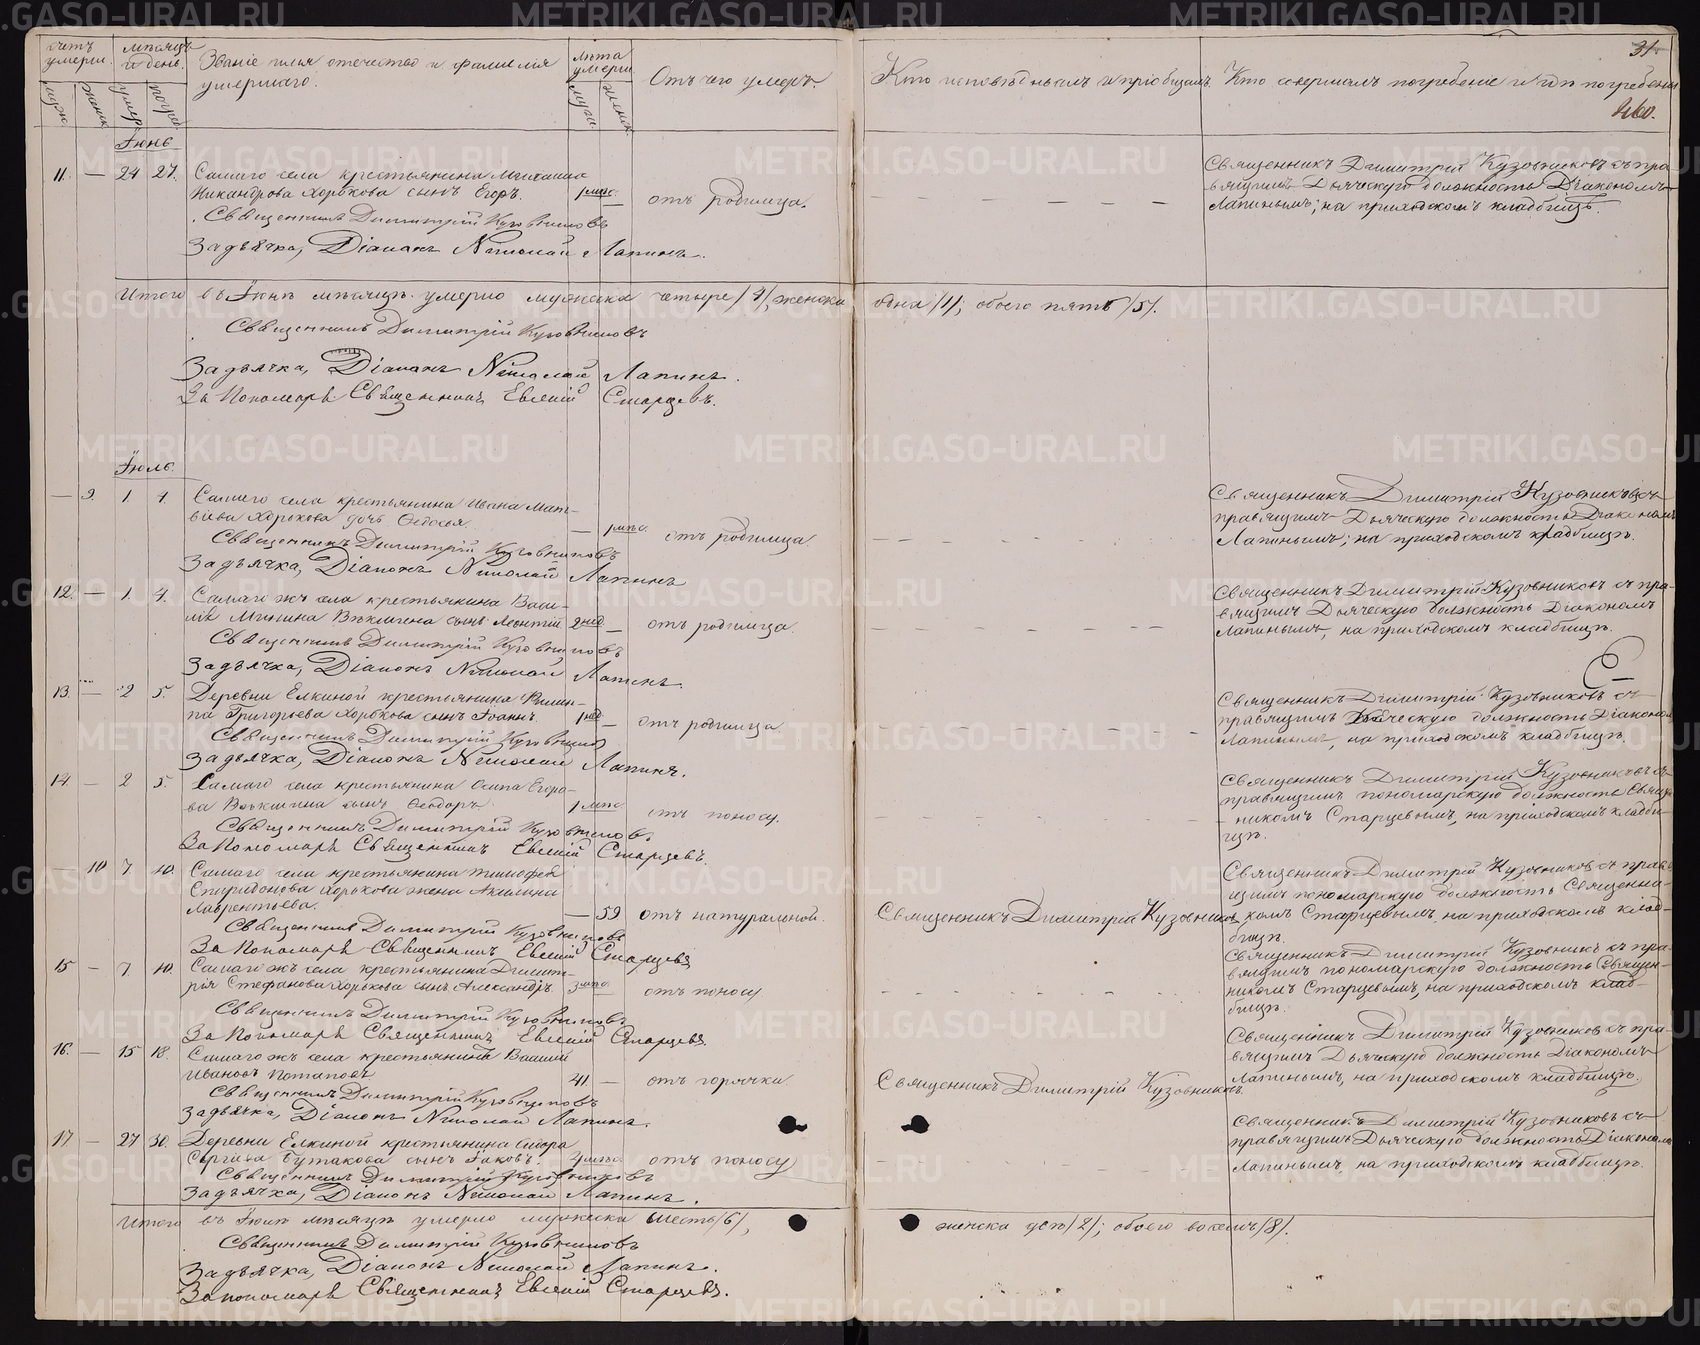 счетъ умерш.
мѣсяцъ и день.
Званіе имя отечество и фамилія
умершаго.
лѣта умерш.
Отъ чего умеръ.
Кто исповѣдывалъ и пріобщалъ.
Кто совершалъ погребеніе и гдѣ погребены
31.
460.
муж.
женск.
умер.
погреб.
муж.
женск.
Іюнь
11. — 24 27. Самаго села крестьянина Михаила
Никандрова Хорькова сынъ Егоръ. 1 мѣс. —
отъ родимца.
Священникъ Димитрій Кузовниковъ
За дьячка, Діаконъ Николай Лапинъ.
Священникъ Димитрій Кузовниковъ съ пра-
вящимъ Дьяческую должность Діакономъ
Лапинымъ; на приходскомъ кладбищѣ.
Итого въ Іюнѣ мѣсяцѣ умерло мужеска четыре /4/, женска одна /1/; обоего пять /5/.
Священникъ Димитрій Кузовниковъ
За дьячка, Діаконъ Николай Лапинъ.
За Пономаря Священникъ Евгеній Старцевъ.
Іюль.
— 9. 1. 4. Самаго села крестьянина Ивана Мат-
вѣева Хорькова дочь Ѳедосья. — 1 мѣс.
отъ родимца
Священникъ Димитрій Кузовниковъ
За дьячка, Діаконъ Николай Лапинъ
Священникъ Димитрій Кузовниковъ съ
правящимъ Дьяческую должность Діакономъ
Лапинымъ; на приходскомъ кладбищѣ.
12. — 1. 4. Самаго жъ села крестьянина Васи-
лія Минина Векшина сынъ Леонтій 2 нед. —
отъ родимца.
Священникъ Димитрій Кузовниковъ
За дьячка, Діаконъ Николай Лапинъ.
Священникъ Димитрій Кузовниковъ съ пра-
вящимъ Дьяческую должность Діакономъ
Лапинымъ, на приходскомъ кладбищѣ.
13. — 2 5. Деревни Елкиной крестьянина Филип-
па Григорьева Хорькова сынъ Іоаннъ. 1 нед. —
отъ родимца
Священникъ Димитрій Кузовниковъ
За дьячка, Діаконъ Николай Лапинъ.
Священникъ Димитрій Кузовниковъ съ
правящимъ Дьяческую должность Діакономъ
Лапинымъ, на приходскомъ кладбищѣ.
14. — 2 5. Самаго села крестьянина Осипа Егоро-
ва Векшина сынъ Ѳеодоръ. 1 мѣс.
отъ поносу.
Священникъ Димитрій Кузовниковъ
За Пономаря Священникъ Евгеній Старцевъ.
Священникъ Димитрій Кузовниковъ съ
правящимъ пономарскую должность Священ-
никомъ Старцевымъ, на приходскомъ кладби-
щѣ.
— 10 7. 10. Самаго села крестьянина Тимофея
Спиридонова Хорькова жена Акилина
Лаврентьева. — 59 отъ натуральной.
Священникъ Димитрій Кузовниковъ
Священникъ Димитрій Кузовниковъ
За Пономаря Священникъ Евгеній Старцевъ
Священникъ Димитрій Кузовниковъ съ правя-
щимъ пономарскую должность Священни-
комъ Старцевымъ, на приходскомъ клад-
бищѣ.
15 — 7. 10. Самаго жъ села крестьянина Димит-
рія Стефанова Хорькова сынъ Александръ. 3 мѣс.
отъ поносу
Священникъ Димитрій Кузовниковъ
За Пономаря Священникъ Евгеній Старцевъ
Священникъ Димитрій Кузовниковъ съ пра-
вящимъ пономарскую должность Священ-
никомъ Старцевымъ, на приходскомъ клад-
бищѣ.
16. — 15 18. Самаго жъ села крестьянинъ Василій
Ивановъ Потаповъ 41. — отъ горячки.
Священникъ Димитрій Кузовниковъ.
Священникъ Димитрій Кузовниковъ
За дьячка, Діаконъ Николай Лапинъ.
Священникъ Димитрій Кузовниковъ съ пра-
вящимъ Дьяческую должность Діакономъ
Лапинымъ, на приходскомъ кладбищѣ.
17 — 27 30. Деревни Елкиной крестьянина Сидора
Сергѣева Бутакова сынъ Іаковъ. 4 мѣс. отъ поносу
Священникъ Димитрій Кузовниковъ
За дьячка, Діаконъ Николай Лапинъ.
Священникъ Димитрій Кузовниковъ съ
правящимъ Дьяческую должность Діакономъ
Лапинымъ, на приходскомъ кладбищѣ.
Итого въ Іюлѣ мѣсяцѣ умерло мужеска шесть /6/, женска двѣ /2/; обоего восемь /8/.
Священникъ Димитрій Кузовниковъ
За дьячка, Діаконъ Николай Лапинъ.
За пономаря Священникъ Евгеній Старцевъ.
METRIKI.GASO-URAL.RU